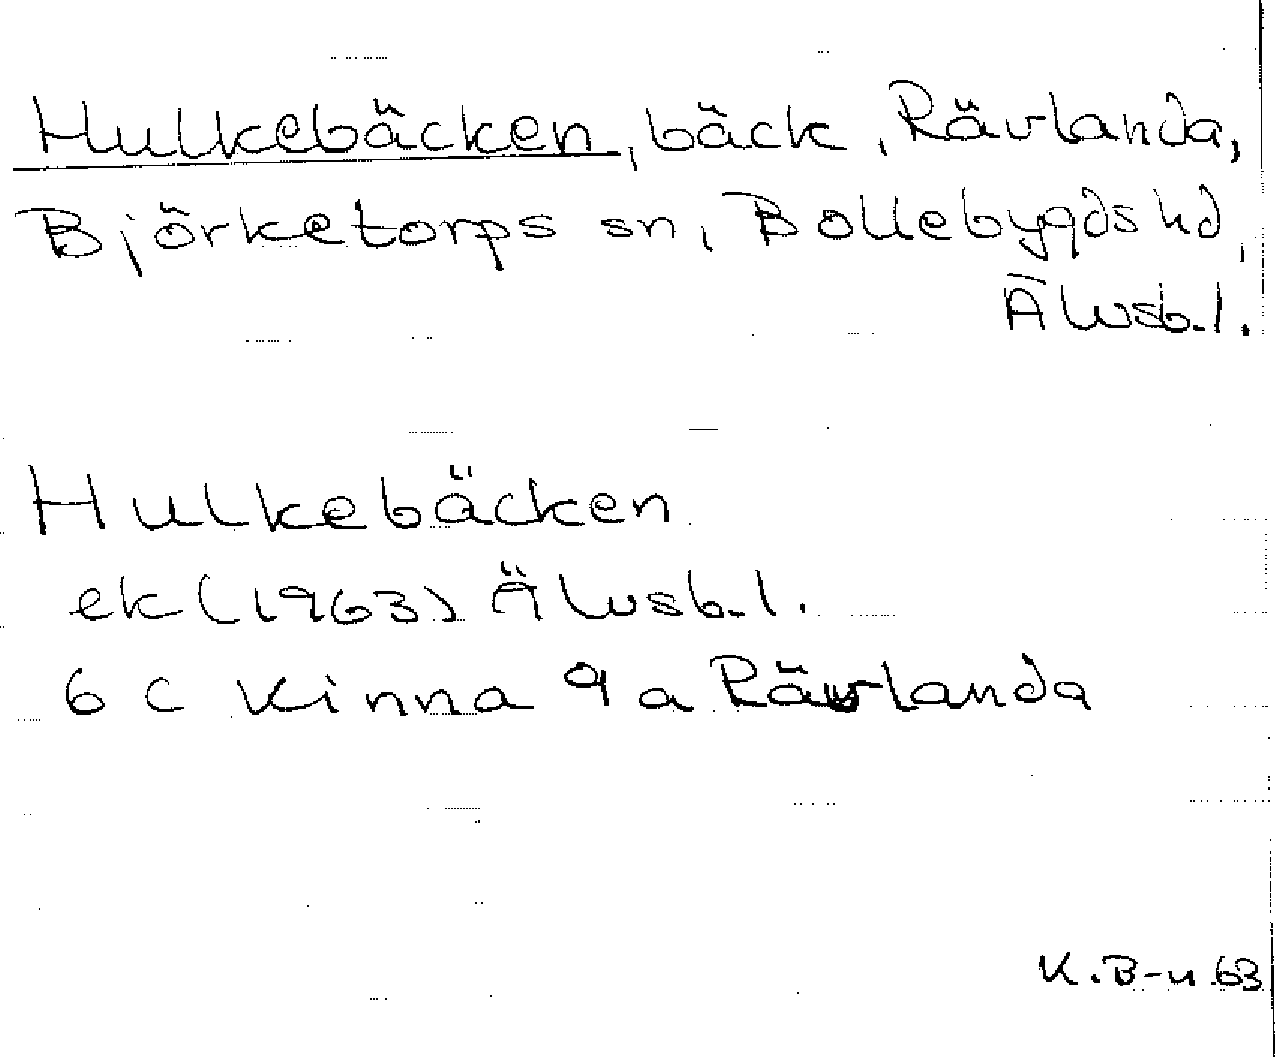 Hulkebäcken, bäck, Rävlanda,
Björketorps sn, Bollebygds hd,
Älvsb.l.
Hulkebäcken
ek (1963) Älvsb.l.
6 C Kinna 9 a Rävlanda
K.B-n 63